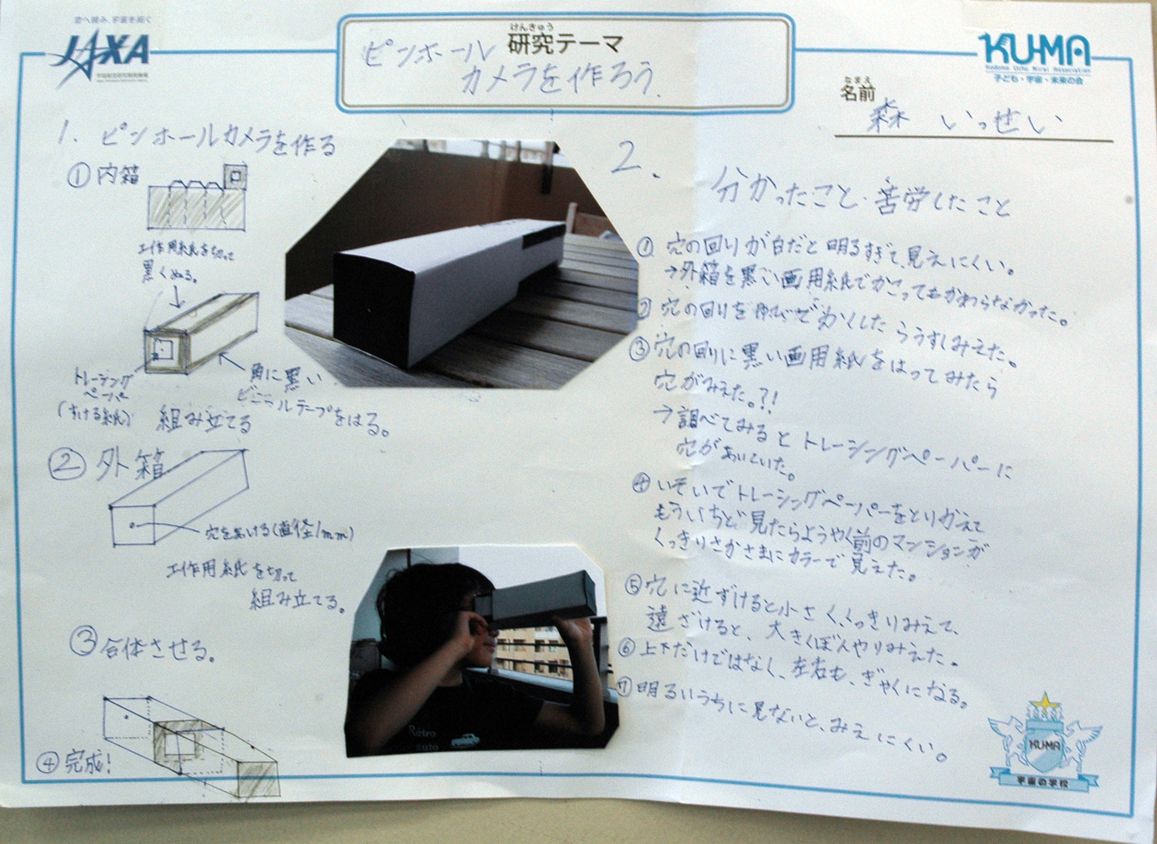 JAXA
けんきゅう
研究テーマ
ピンホール
カメラを作ろう.
KU-MA
子ども・宇宙・未来の会
なまえ
名前
森 いっせい
1. ピンホールカメラを作る
①内箱
工作用紙を切って
黒くぬる。
トレーシング
ペーパー
(すける紙)
角に黒い
ビニールテープをはる。
組み立てる
②外箱
穴をあける(直径1mm)
工作用紙を切って
組み立てる。
③合体させる。
④完成!
2.
分かったこと・苦労したこと
①穴の回りが白だと明るすぎて、見えにくい。
→外箱を黒い画用紙でかこってもかわらなかった。
②穴の回りを くしたらうすくみえた。
③穴の回りに黒い画用紙をはってみたら
穴がみえた。?!
→調べてみるとトレーシングペーパーに
穴があいていた。
④いそいでトレーシングペーパーをとりかえて
もういちど見たらようやく前のマンションが
くっきりさかさまにカラーで見えた。
⑤穴に近ずけると小さく、くっきりみえて、
遠ざけると、大きくぼんやりみえた。
⑥上下だけではなく、左右も、ぎゃくになる。
⑦明るいうちに見ないと、みえにくい。
Retro
KUMA
宇宙の学校